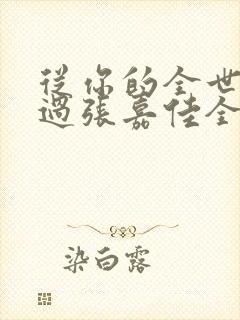 從你的全世
過張嘉佳全
染白露